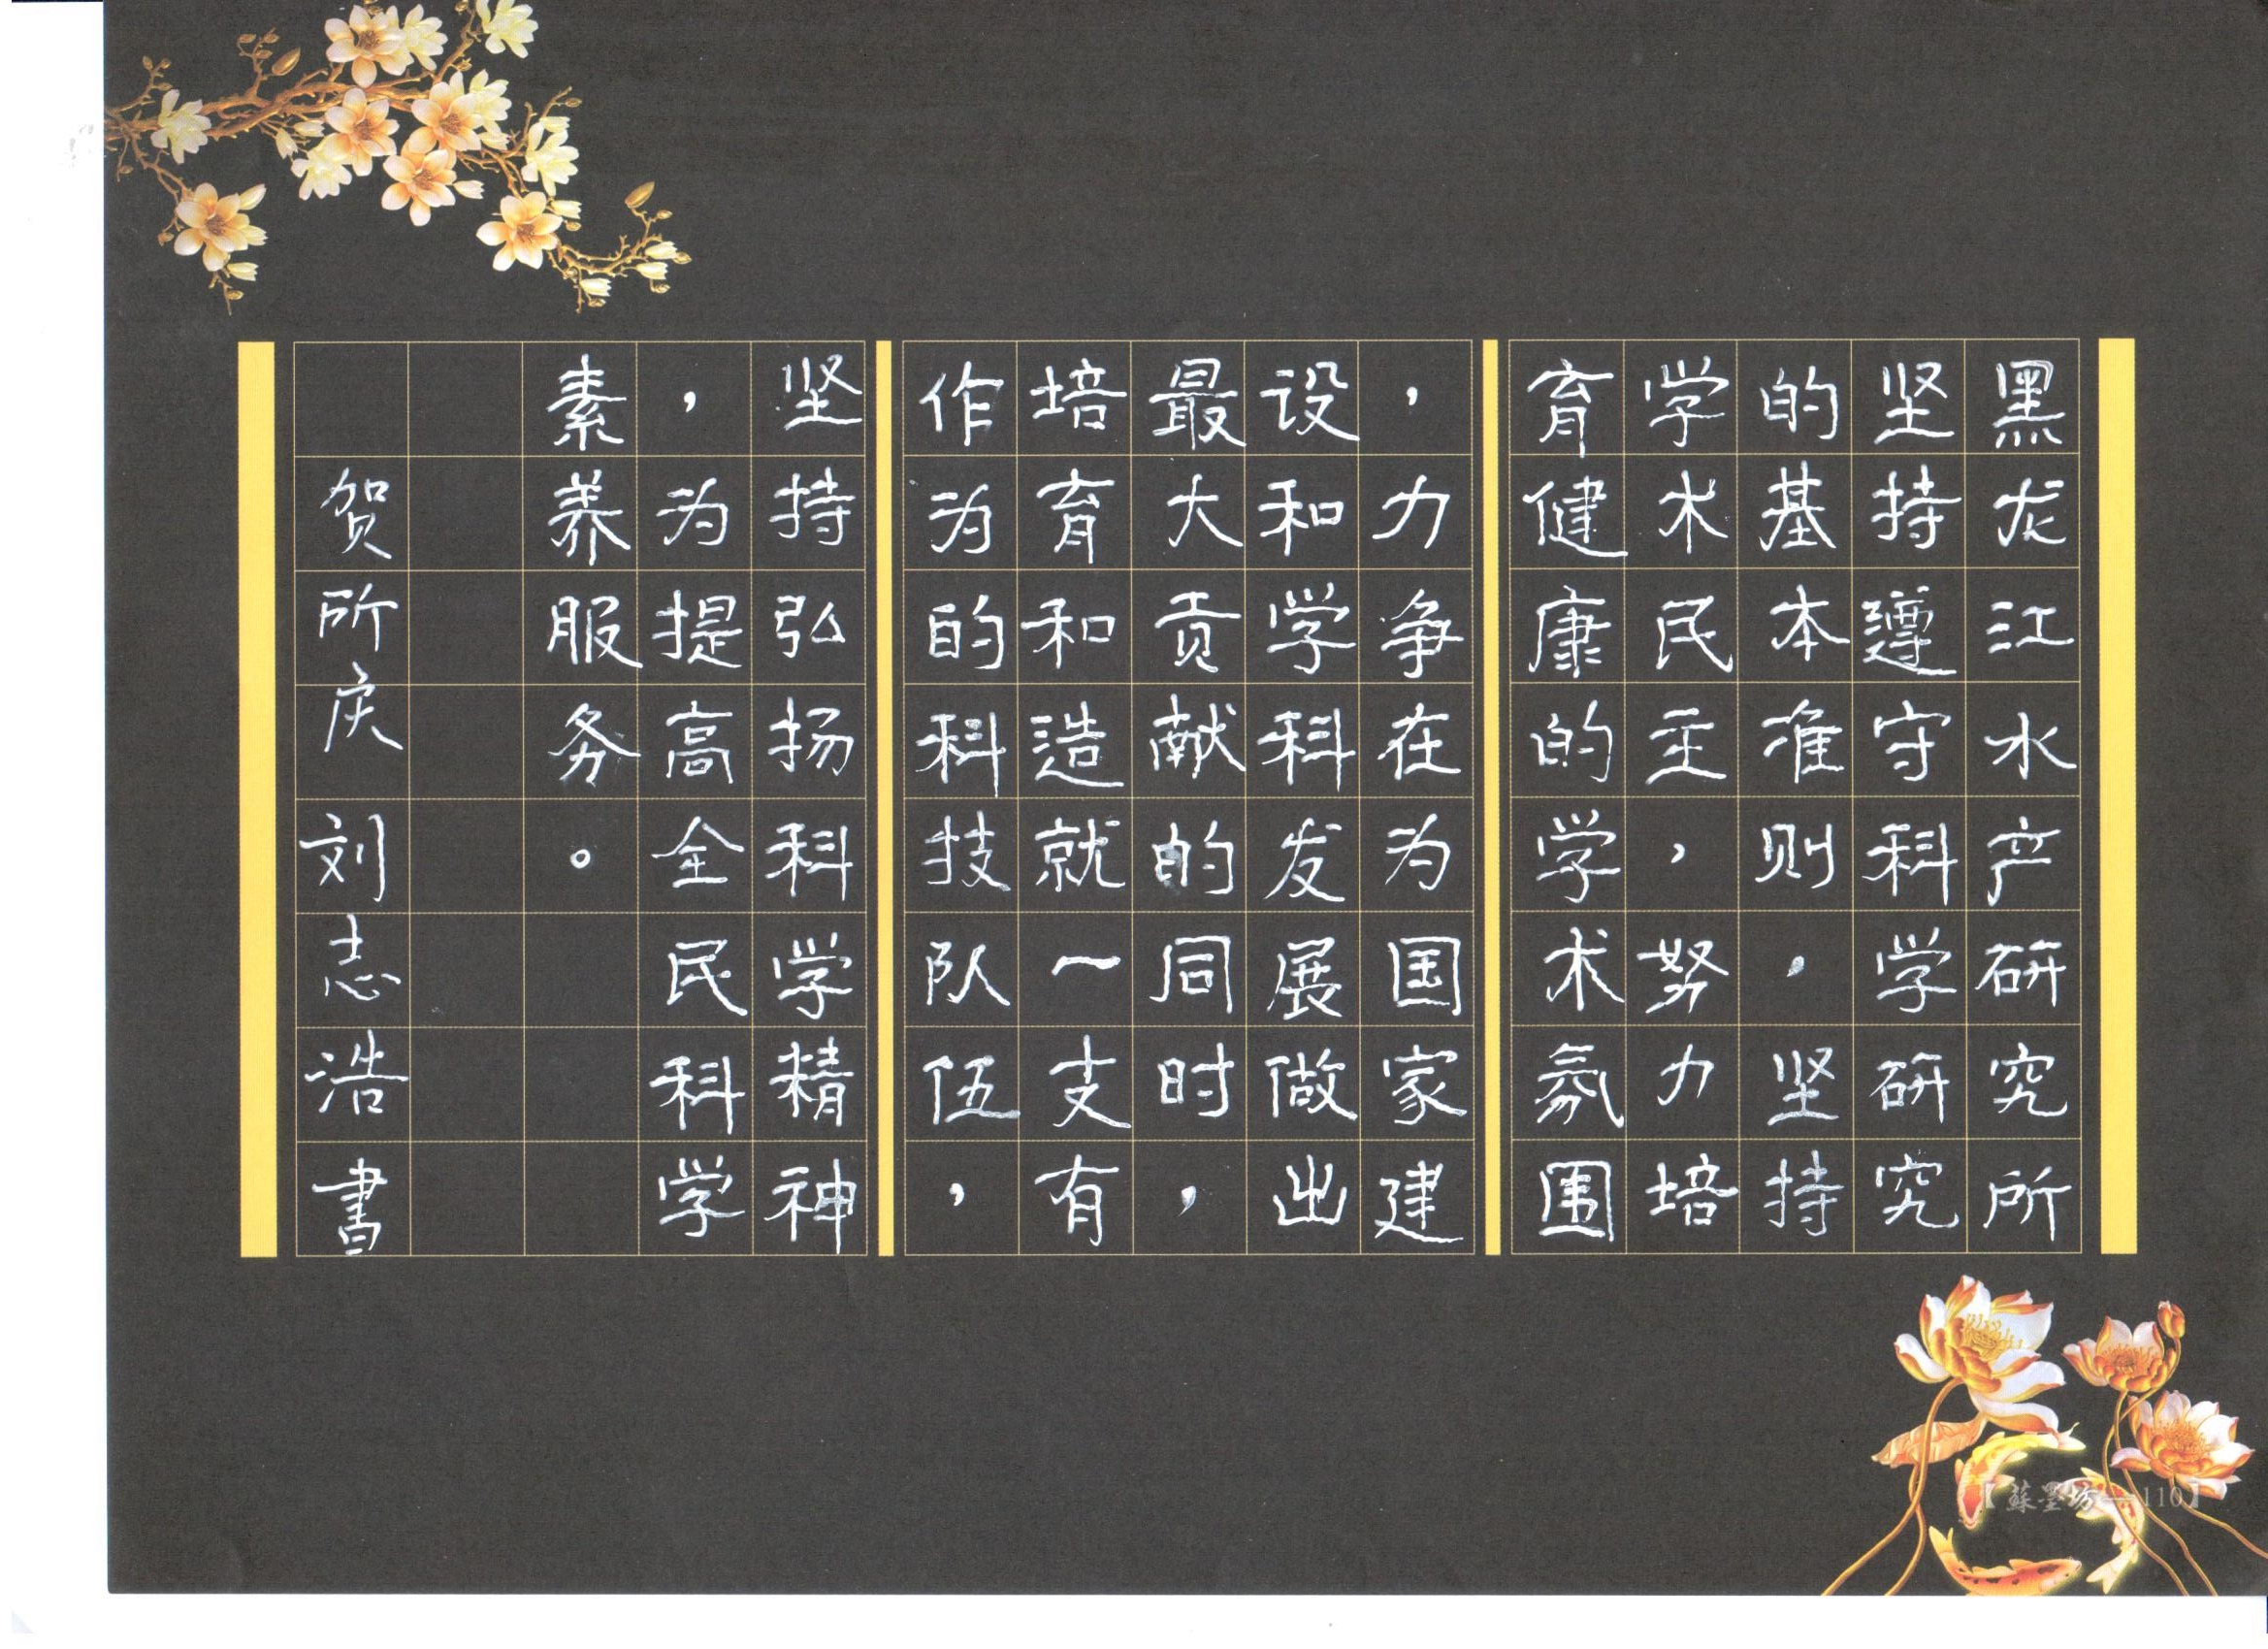 黑龙江水产研究所
坚持遵守科学研究
的基本准则，坚持
学术民主，努力培
育健康的学术氛围
，力争在为国家建
设和学科发展做出
最大贡献的同时，
培育和造就一支有
作为的科技队伍，
坚持弘扬科学精神
，为提高全民科学
素养服务。
贺所庆 刘志浩書
【蘇墨坊—110】